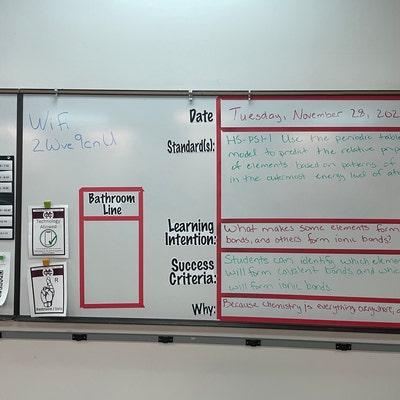 WiFi
2Wive9cnU
Bathroom
Line
Technology
Allowed
R
Date
Tuesday, November 28, 202
Standard(s):
HS-PS1-1 Use the periodic table
model to predict the relative prop
of elements based on patterns of
in the outermost energy level of at
Learning
Intention:
What makes some elements form
bonds, and others form ionic bonds?
Success
Criteria:
Students can identify which elemen
will form covalent bonds and whic
will form ionic bonds.
Why:
Because Chemistry is everything everywhere, a